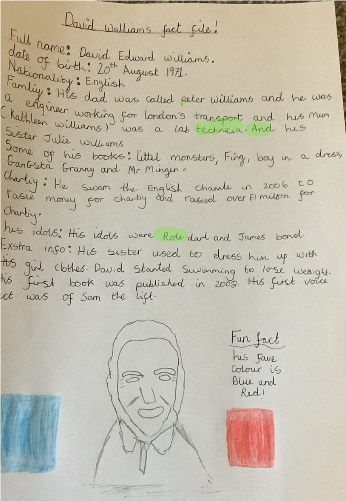 David Walliams fact file!
Full name: David Edward williams.
date of birth: 20th August 1971.
Nationality: English
Famliy: His dad was called peter Williams and he was
a engineer working for London's transport and his mum
(Kathleen williams) was a lab technicia. And his
Sister Julie williams
Some of his books: littel monsters, Fing, boy in a dress,
Gangsta Granny and Mr Munger.
Charity: He swam the English in 2006 to
raise money for charity and rasied over £1 million for
Charity.
his idols: His idols were Role darl and James bond.
Exstra info: His sister used to dress him up with
His girl clothes. David started swimming to lose weight.
his first book was published in 2008. His first voice
act was of Sam the lift.
Fun fact
his fave
Colour is
Blue and
Red!